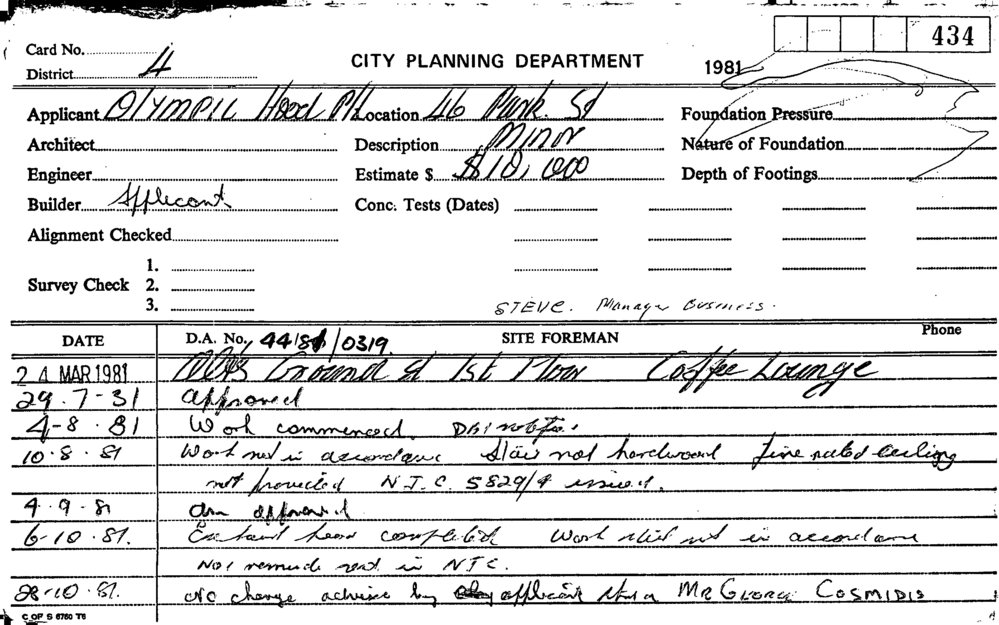 434
Card No.
CITY PLANNING DEPARTMENT
1981
District 4
Applicant OLYMPIC Hood P/L Location 46 Park St Foundation Pressure
Architect Description Minor Nature of Foundation
Engineer Estimate $ $10,000 Depth of Footings
Builder Applicant Conc. Tests (Dates)
Alignment Checked
1.
Survey Check 2.
3.
STEVE. Manager Business.
DATE D.A. No. 44/81/0319. SITE FOREMAN Phone
24 MAR 1981 Ground & 1st Floor Coffee Lounge
29.7-81 Approved
4-8.81 Work commenced.
10.8.81 Work not in accordance Stair not hardwood fire rated ceiling
not provided N.T.C. 5829/9 issued.
4.9.81 approved
6-10.81. Exhaust hood completed Work still not in accordance
sent in NTC.
28-10.81. No change advice by applicant Mr GEORGE COSMIDIS
C OF S 6760 T6